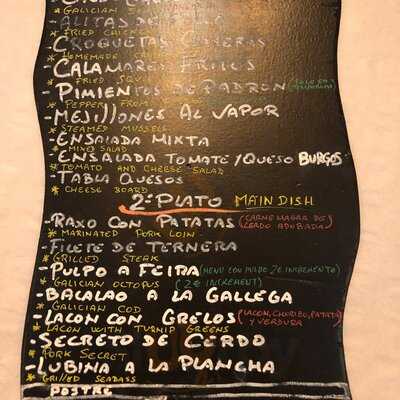 * GALICIAN
-ALITAS DE POLLO
* FRIED CHICKEN
-CROQUETAS CASERAS
* HOMEMADE
-CALAMARES FRITOS
* FRIED SQUID
-PIMIENTOS DE PADRÓN
* PEPPER FROM
-MESILLONES AL VAPOR
* STEAMED MUSSELS
-ENSALADA MIXTA
* MIXED SALAD
-ENSALADA TOMATE/QUESO BURGOS
* TOMATO AND CHEESE SALAD
-TABLA QUESOS
* CHEESE BOARD
2º PLATO MAIN DISH
-RAXO CON PATATAS (CARNE MAGRA DE CERDO ADOBADA)
* MARINATED PORK LOIN
-FILETE DE TERNERA
* GRILLED STEAK
-PULPO A FEIRA (MENU CON PULPO 2€ INCREMENTO)
* GALICIAN OCTOPUS (2€ INCREMENT)
-BACALAO A LA GALLEGA
* GALICIAN COD
-LACON CON GRELOS (LACON, CHORIZO, PATATA Y VERDURA)
* LACON WITH TURNIP GREENS
-SECRETO DE CERDO
* PORK SECRET
-LUBINA A LA PLANCHA
* GRILLED SEABASS
POSTRE